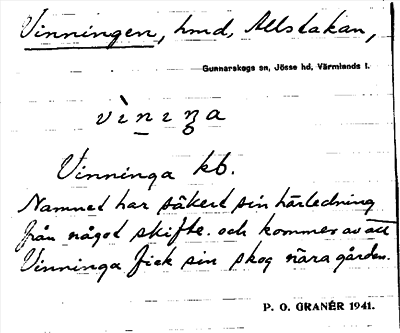 Vinningen, hmd, Allstakan,
Gunnarskogs sn, Jösse hd, Värmlands l.
vìnıŋa
Vinninga kb.
Namnet har säkert sin härledning
från något skifte. och kommer av att
Vinninga fick sin skog nära gården.
P. O. GRANÉR 1941.